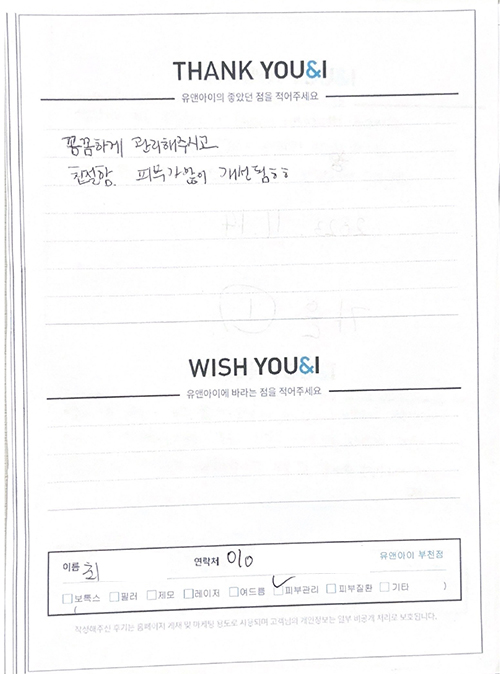 THANK YOU&I
유앤아이의 좋았던 점을 적어주세요
꼼꼼하게 관리해주시고
친절함. 피부가 많이 개선됨ㅎㅎ
WISH YOU&I
유앤아이에 바라는 점을 적어주세요
이름 최 연락처 010 유앤아이 부천점
보톡스 필러 제모 레이저 여드름 피부관리 피부질환 기타
( )
작성해주신 후기는 홈페이지 게재 및 마케팅 용도로 사용되며 고객님의 개인정보는 일부 비공개 처리로 보호됩니다.